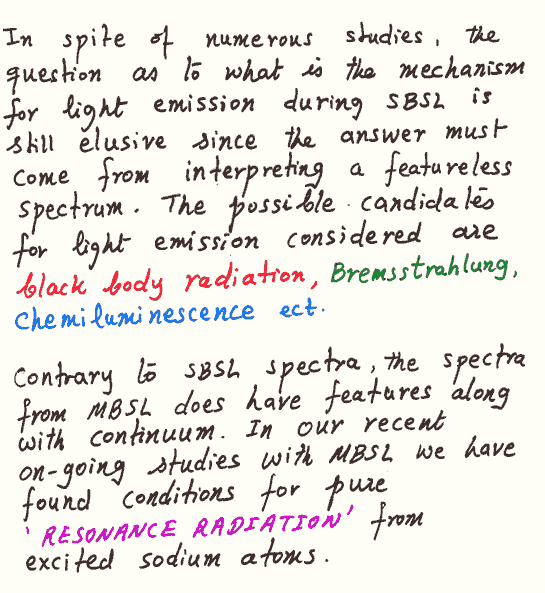 In spite of numerous studies, the
question as to what is the mechanism
for light emission during SBSL is
still elusive since the answer must
come from interpreting a featureless
spectrum. The possible candidates
for light emission considered are
black body radiation, Bremsstrahlung,
Chemiluminescence ect.
Contrary to SBSL spectra, the spectra
from MBSL does have features along
with continuum. In our recent
on-going studies with MBSL we have
found conditions for pure
'RESONANCE RADIATION' from
excited sodium atoms.